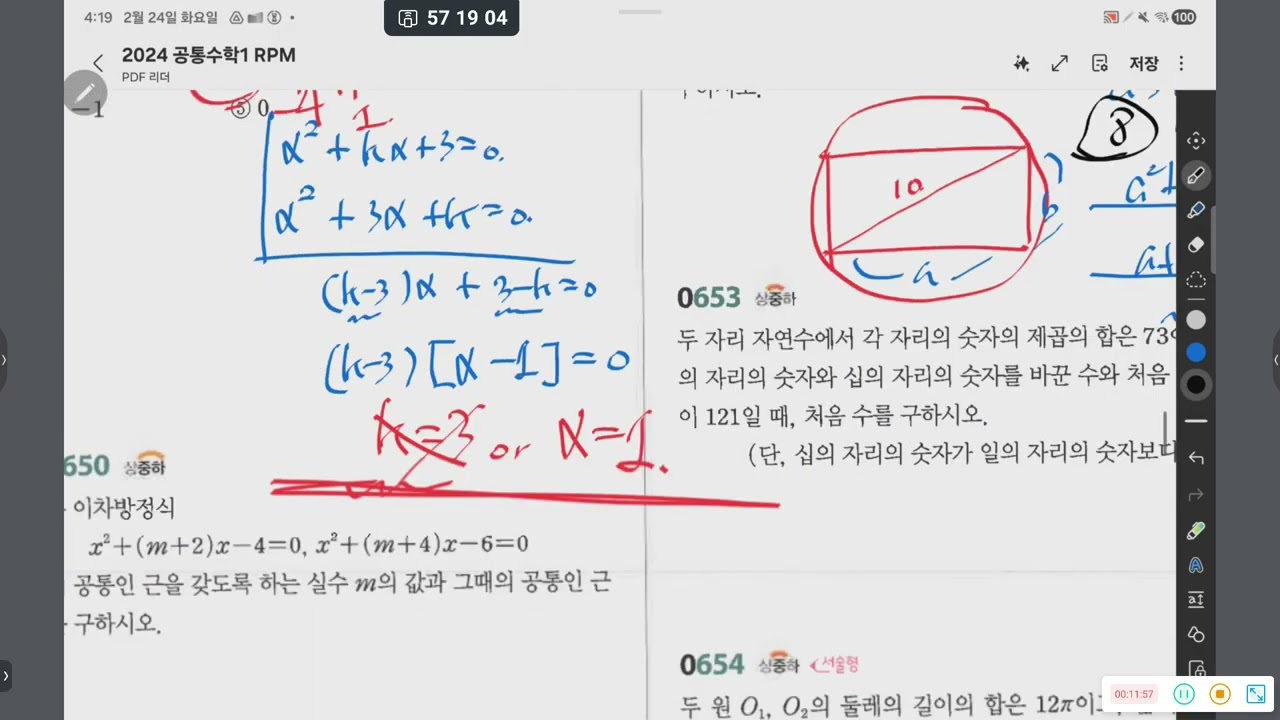 4:19 2월 24일 화요일
57 19 04
100
2024 공통수학1 RPM
PDF 리더
저장
-1
⑤ 0
1
α² + kα + 3 = 0.
α² + 3α + k = 0.
(k-3)α + 3-k = 0
(k-3)[α-1] = 0
k=3 or α=1.
650 상중하
이차방정식
x²+(m+2)x-4=0, x²+(m+4)x-6=0
공통인 근을 갖도록 하는 실수 m의 값과 그때의 공통인 근
구하시오.
10
a
b
8
a²+
a+
0653 상중하
두 자리 자연수에서 각 자리의 숫자의 제곱의 합은 73
의 자리의 숫자와 십의 자리의 숫자를 바꾼 수와 처음
이 121일 때, 처음 수를 구하시오.
(단, 십의 자리의 숫자가 일의 자리의 숫자보다
0654 상중하 서술형
두 원 O₁, O₂의 둘레의 길이의 합은 12π이고
00:11:57